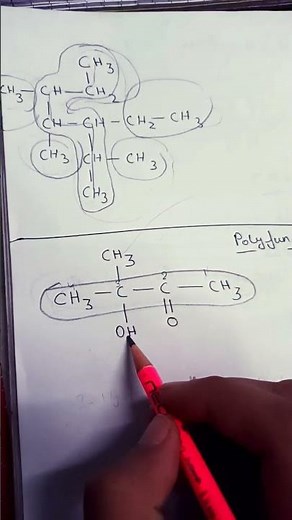 CH3
CH3 — CH — CH2
CH — CH — CH2 — CH3
CH3 CH — CH3
CH3
Polyfun
CH3
4 3 2 1
CH3 — C — C — CH3
OH O